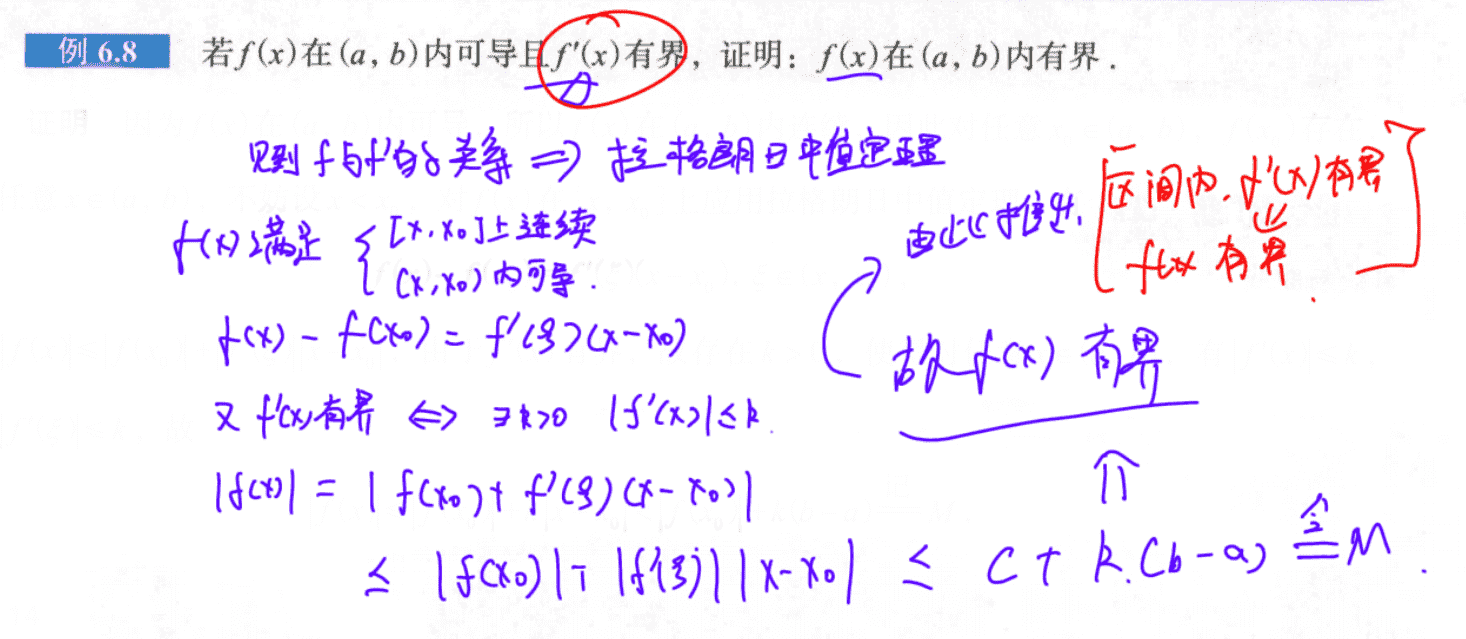 例 6.8 若f(x)在(a, b)内可导且f′(x)有界，证明：f(x)在(a, b)内有界．
见到 f 与 f′ 的关系 ⇒ 拉格朗日中值定理
f(x) 满足 { [x, x₀]上连续
(x, x₀)内可导.
f(x) - f(x₀) = f′(ξ)(x-x₀)
又 f′(x)有界 ⇔ ∃k>0 |f′(x)|≤k.
|f(x)| = |f(x₀)+f′(ξ)(x-x₀)|
≤ |f(x₀)|+|f′(ξ)||x-x₀| ≤ C+k.(b-a) ≜ M.
⇑
故 f(x) 有界
由此得出,
[区间内, f′(x)有界
⇓
f(x) 有界.]